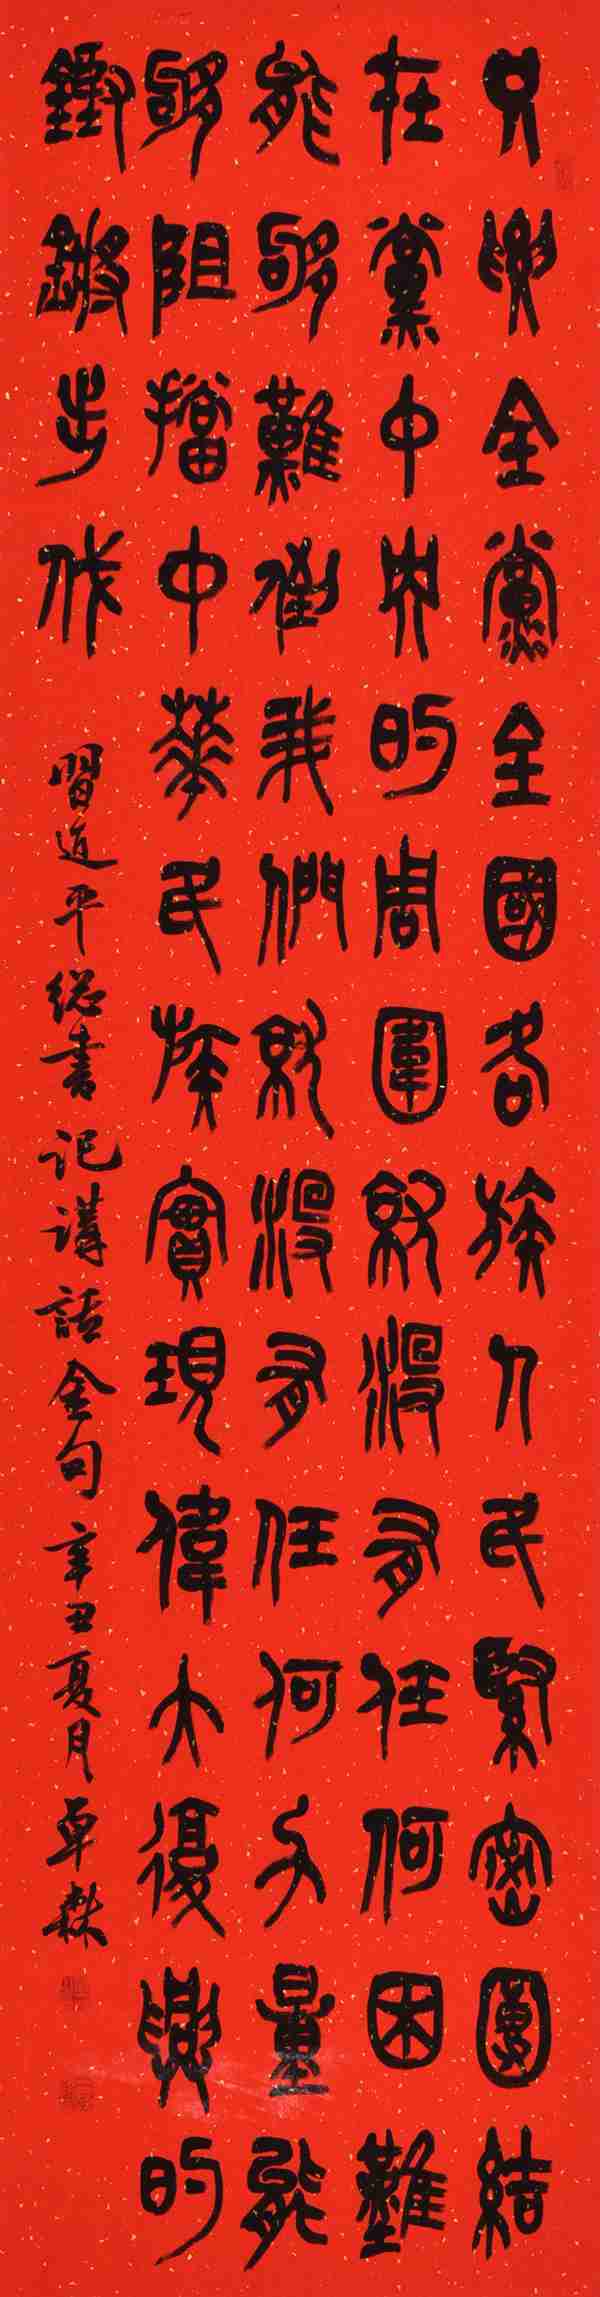 只要全黨全國各族人民緊密團結
在黨中央的周圍就沒有任何困難
能夠難倒我們就沒有任何力量能
夠阻擋中華民族實現偉大復興的
鏗鏘步伐
習近平總書記講話金句辛丑夏月卓